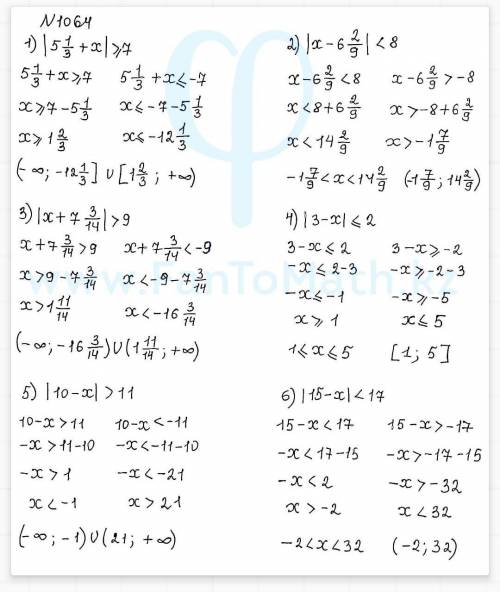 №1064
1) |5 1/3 + x| ⩾ 7
5 1/3 + x ⩾ 7   5 1/3 + x ⩽ -7
x ⩾ 7 - 5 1/3   x ⩽ -7 - 5 1/3
x ⩾ 1 2/3   x ⩽ -12 1/3
(-∞; -12 1/3] ∪ [1 2/3; +∞)
2) |x - 6 2/9| < 8
x - 6 2/9 < 8   x - 6 2/9 > -8
x < 8 + 6 2/9   x > -8 + 6 2/9
x < 14 2/9   x > -1 7/9
-1 7/9 < x < 14 2/9   (-1 7/9; 14 2/9)
3) |x + 7 3/14| > 9
x + 7 3/14 > 9   x + 7 3/14 < -9
x > 9 - 7 3/14   x < -9 - 7 3/14
x > 1 11/14   x < -16 3/14
(-∞; -16 3/14) ∪ (1 11/14; +∞)
4) |3 - x| ⩽ 2
3 - x ⩽ 2   3 - x ⩾ -2
-x ⩽ 2 - 3   -x ⩾ -2 - 3
-x ⩽ -1   -x ⩾ -5
x ⩾ 1   x ⩽ 5
1 ⩽ x ⩽ 5   [1; 5]
5) |10 - x| > 11
10 - x > 11   10 - x < -11
-x > 11 - 10   -x < -11 - 10
-x > 1   -x < -21
x < -1   x > 21
(-∞; -1) ∪ (21; +∞)
6) |15 - x| < 17
15 - x < 17   15 - x > -17
-x < 17 - 15   -x > -17 - 15
-x < 2   -x > -32
x > -2   x < 32
-2 < x < 32   (-2; 32)
www.FonToMath.kz